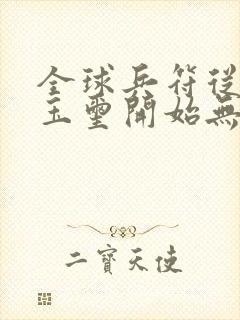 全球兵符從
玉璽開始無
二寶天使